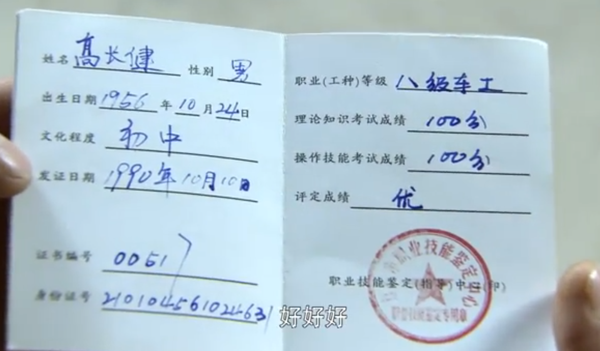 姓名 高长健 性别 男
出生日期 1956 年 10 月 24 日
文化程度 初中
发证日期 1990年10月10日
证书编号 0051
身份证号 210104561024631
职业(工种)等级 八级车工
理论知识考试成绩 100分
操作技能考试成绩 100分
评定成绩 优
职业技能鉴定(指导)中心(印)
职业技能鉴定中心
好好好